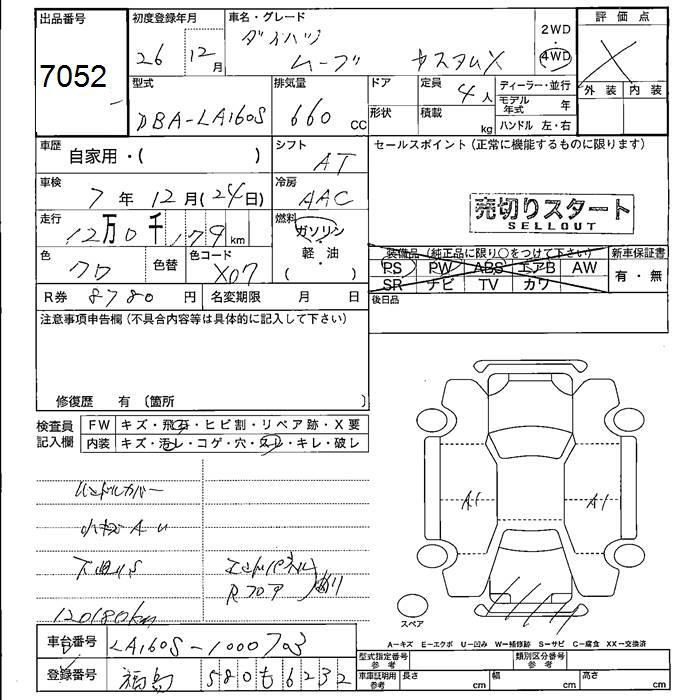 出品番号
7052
初度登録年月
26 12月
車名・グレード
ダイハツ
ムーブ カスタムX
2WD
・
4WD
評価点
X
外装 内装
型式
DBA-LA160S
排気量
660 cc
ドア
形状
定員
4人
積載
kg
ディーラー・並行
モデル年式 年
ハンドル 左・右
車歴
自家用・( )
シフト
AT
セールスポイント(正常に機能するものに限ります)
車検
7年 12月(24日)
冷房
AAC
売切りスタート
SELLOUT
走行
12万0千179km
燃料
ガソリン
・
軽・油
( )
色
クロ
色替
色コード
X07
装備品(純正品に限り○をつけて下さい)
PS PW ABS エアB AW
SR ナビ TV カワ
新車保証書
有・無
後日品
R券 8780円
名変期限 月 日
注意事項申告欄(不具合内容等は具体的に記入して下さい)
修復歴 有〔箇所 〕
検査員記入欄
FW キズ・飛石・ヒビ割・リペア跡・X要
内装 キズ・汚レ・コゲ・穴・スレ・キレ・破レ
ハンドルカバー
小キズAU
下廻りS
エンドパネル
Rフロア
120180km
A1 A1
スペア
A-キズ E-エクボ U-凹み W-補修跡 S-サビ C-腐食 XX-交換済
車台番号 LA160S-1000703
登録番号 福島 580 も 6232
型式指定番号
参考
類別区分番号
参考
車庫証明用
参考
長さ cm
幅 cm
高さ cm